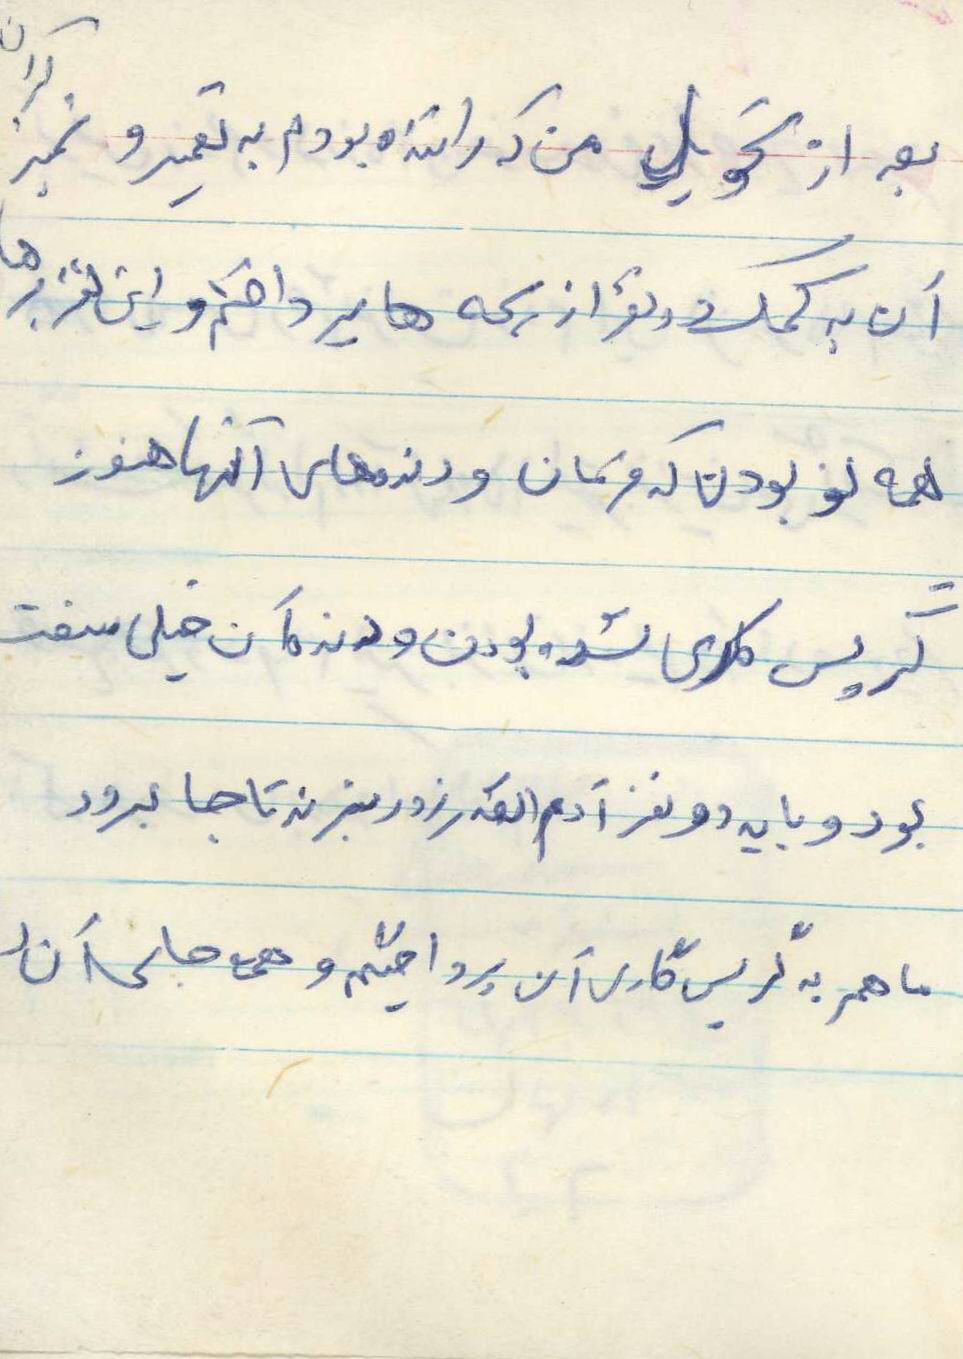 بعد از تحویل من که راننده بودم به تعمیر و تمیز کردن
آن به کمک دو نفر از بچه ها پرداختم و این نفربرها
همه نو بودن که فرمان و دنده‌های آنها هنوز
گریس کاری نشده بودن و دنده آن خیلی سفت
بود و باید دو نفر آدم زور بزند تا جا برود
ما هم به گریس کاری آن پرداختیم و همه جای آن